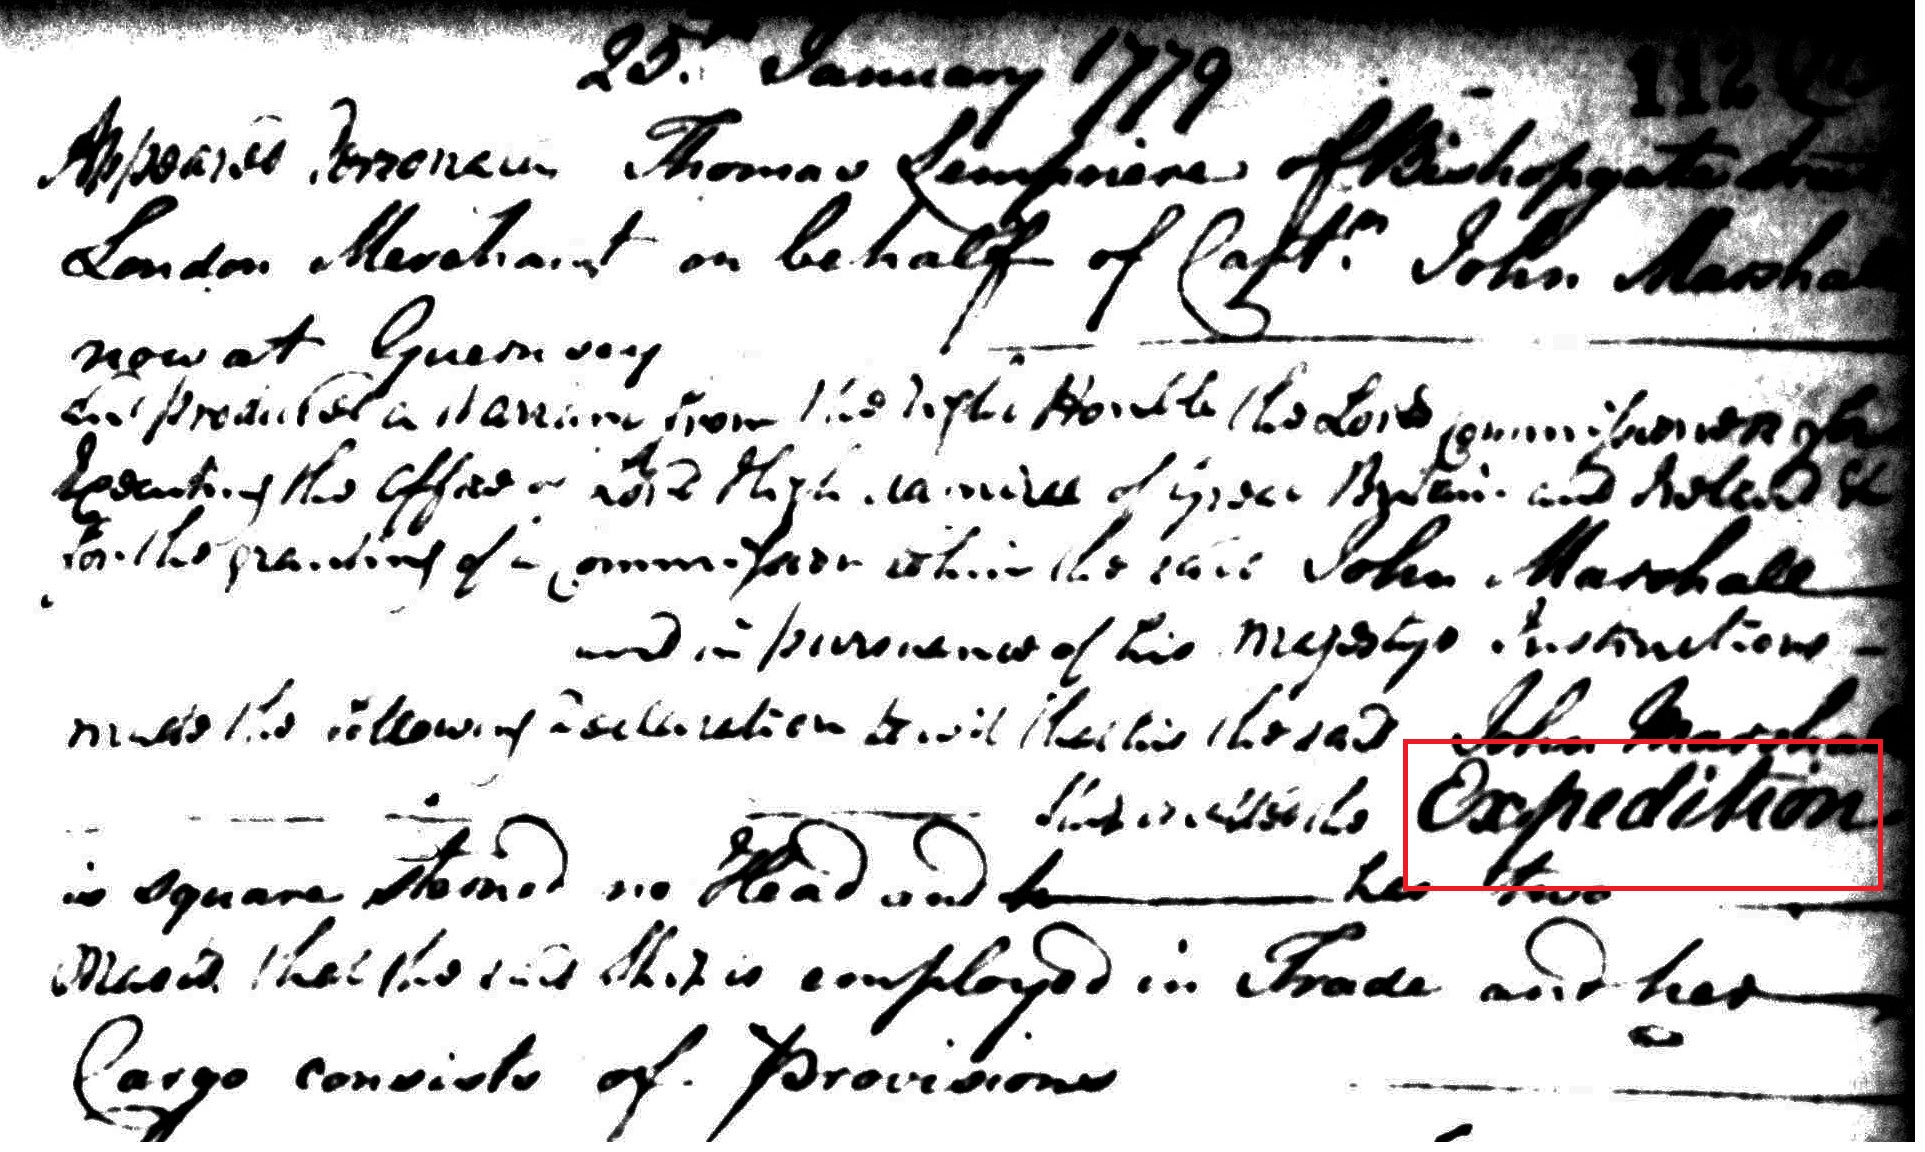 25th January 1779
112
Appeared Personally Thomas Lempriere of Bishopgate Street
London Merchant on behalf of Captn. John Marshall
now at Guernsey
and produced a Warrant from the Right Honble the Lords Commissioners for
Executing the Office of Lord High Admiral of Great Britain and Ireland &c
for the granting of a Commission to him the said John Marshall
and in pursuance of his Majestys Instructions
made the following Declaration to wit that his the said John Marshall
Ship is called the Expedition
is square sterned no Head and h has two
Masts that the said Ship is employed in Trade and her
Cargo consists of Provisions